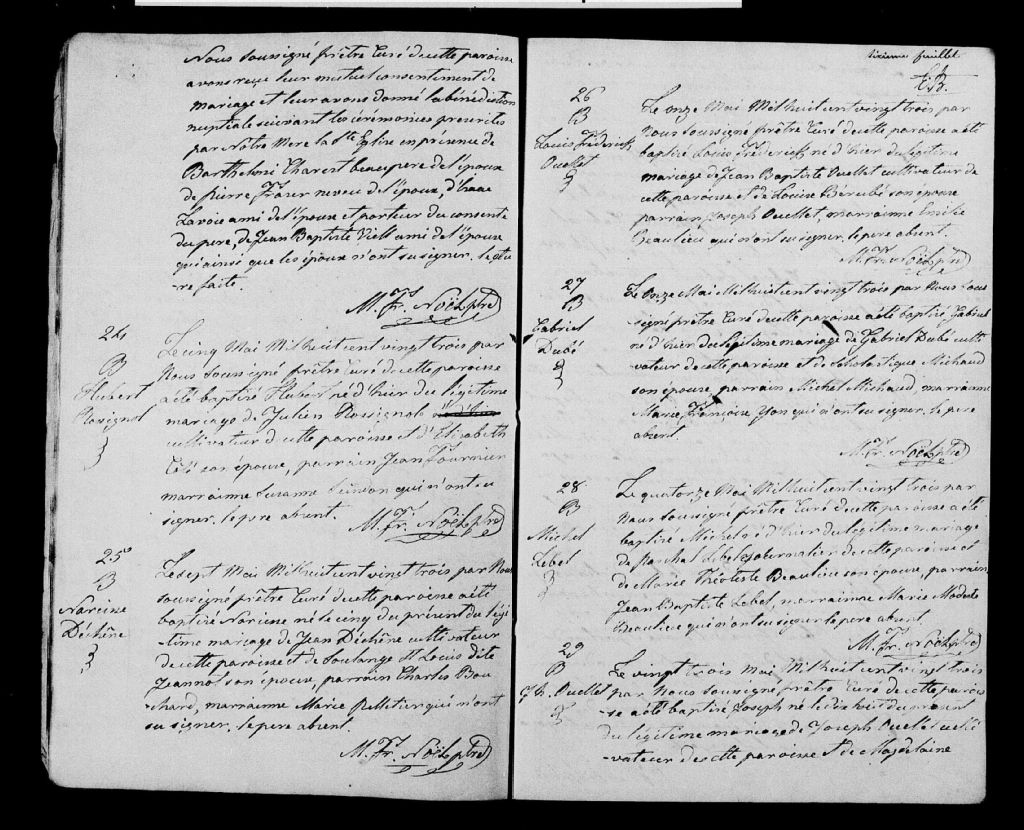 Nous soussigné prêtre Curé de cette paroisse
avons reçu leur mutuel consentement de
mariage et leur avons donné la bénédiction
nuptiale suivant les cérémonies prescrites
par Nôtre Mere la Ste Eglise en présence de
Barthelemi Charest beaupere de l'époux
de pierre Fraser neveu de l'époux, d'Isaac
Lavoie ami de l'épouse et porteur du consente
du pere, de Jean Baptiste Viell ami de l'épouse
qui ainsi que les époux n'ont su signer, lectu
-re faite.
M. Fr. Noël ptre
24
B
Hubert
Rossignol
Le cinq Mai Mil huit cent vingt trois par
Nous soussigné prêtre Curé de cette paroisse
a été baptisé Hubert né d'hier du légitime
mariage de Julien Rossignol
cultivateur d cette paroisse et d'Elisabeth
son épouse, parrain Jean Fournier
marraine Susanne qui n'ont su
signer, le pere absent.
M. Fr. Noël ptre
25
B
Narcisse
Déchêne
Le sept Mai Mil huit cent vingt trois par Nous
soussigné prêtre Curé de cette paroisse a été
baptisé Narcisse né le cinq du présent du légi
-time mariage de Jean Déchêne cultivateur
de cette paroisse et de Soulange St Louis dite
Jeannot son épouse, parrain Charles Bou
-chard, marraine Marie pelletier qui n'ont
su signer, le pere absent.
M. Fr. Noël ptre
sixieme feuillet
26
B
Louis Frédérick
Ouellet
Le onze Mai Mil huit cent vingt trois par
Nous soussigné prêtre Curé de cette paroisse a été
baptisé Louis Frédérick né d'hier du légitime
mariage de Jean Baptiste Ouellet cultivateur de
cette paroisse et de Louise Bérubé son épouse
parrain Joseph Ouellet, marraine Emilie
Beaulieu qui n'ont su signer, le pere absent.
M. Fr. Noël ptre
27
B
Gabriel
Dubé
Le Onze Mai Mil huit cent vingt trois par Nous sous
-signé prêtre Curé de cette paroisse a été baptisé Gabriel
né d'hier du légitime mariage de Gabriel Dubé culti
-vateur de cette paroisse et de Scholastique Michaud
son épouse, parrain Michel Michaud, marraine
Marie Françoise Yon qui n'ont su signer, le pere
absent.
M. Fr. Noël ptre
28
B
Michel
Lebel
Le quatorze Mai Mil huit cent vingt trois par
Nous soussigné prêtre Curé de cette paroisse a été
baptisé Michel né d'hier du légitime mariage
de Paschal Lebel journalier de cette paroisse et
de Marie Théotiste Beaulieu son épouse, parrain
Jean Baptiste Lebel, marraine Marie Modeste
Beaulieu qui n'ont su signer le pere absent.
M. Fr. Noël ptre
29
B
Jh. Ouellet
Le vingt trois Mai Mil huit cent vingt trois
par Nous soussigné prêtre Curé de cette parois
-se a été baptisé Joseph né le dix huit du présent
du légitime mariage de Joseph Ouellet culti
-vateur de cette paroisse et de Magdelaine